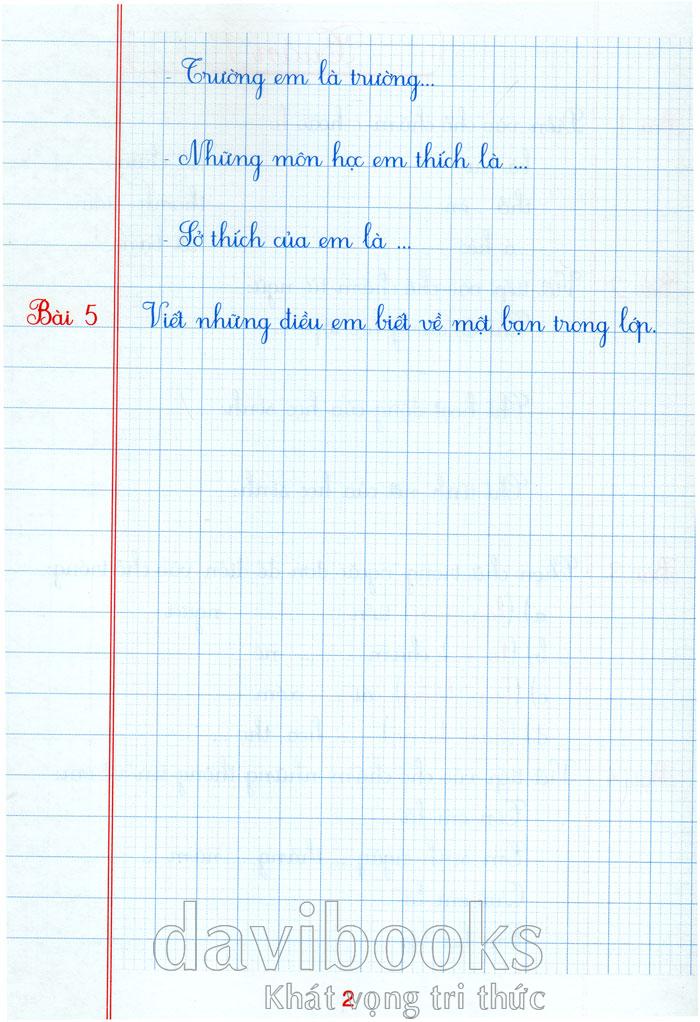 - Trường em là trường...
- Những môn học em thích là ...
- Sở thích của em là ...
Bài 5 Viết những điều em biết về một bạn trong lớp.
davibooks
Khát vọng tri thức
2